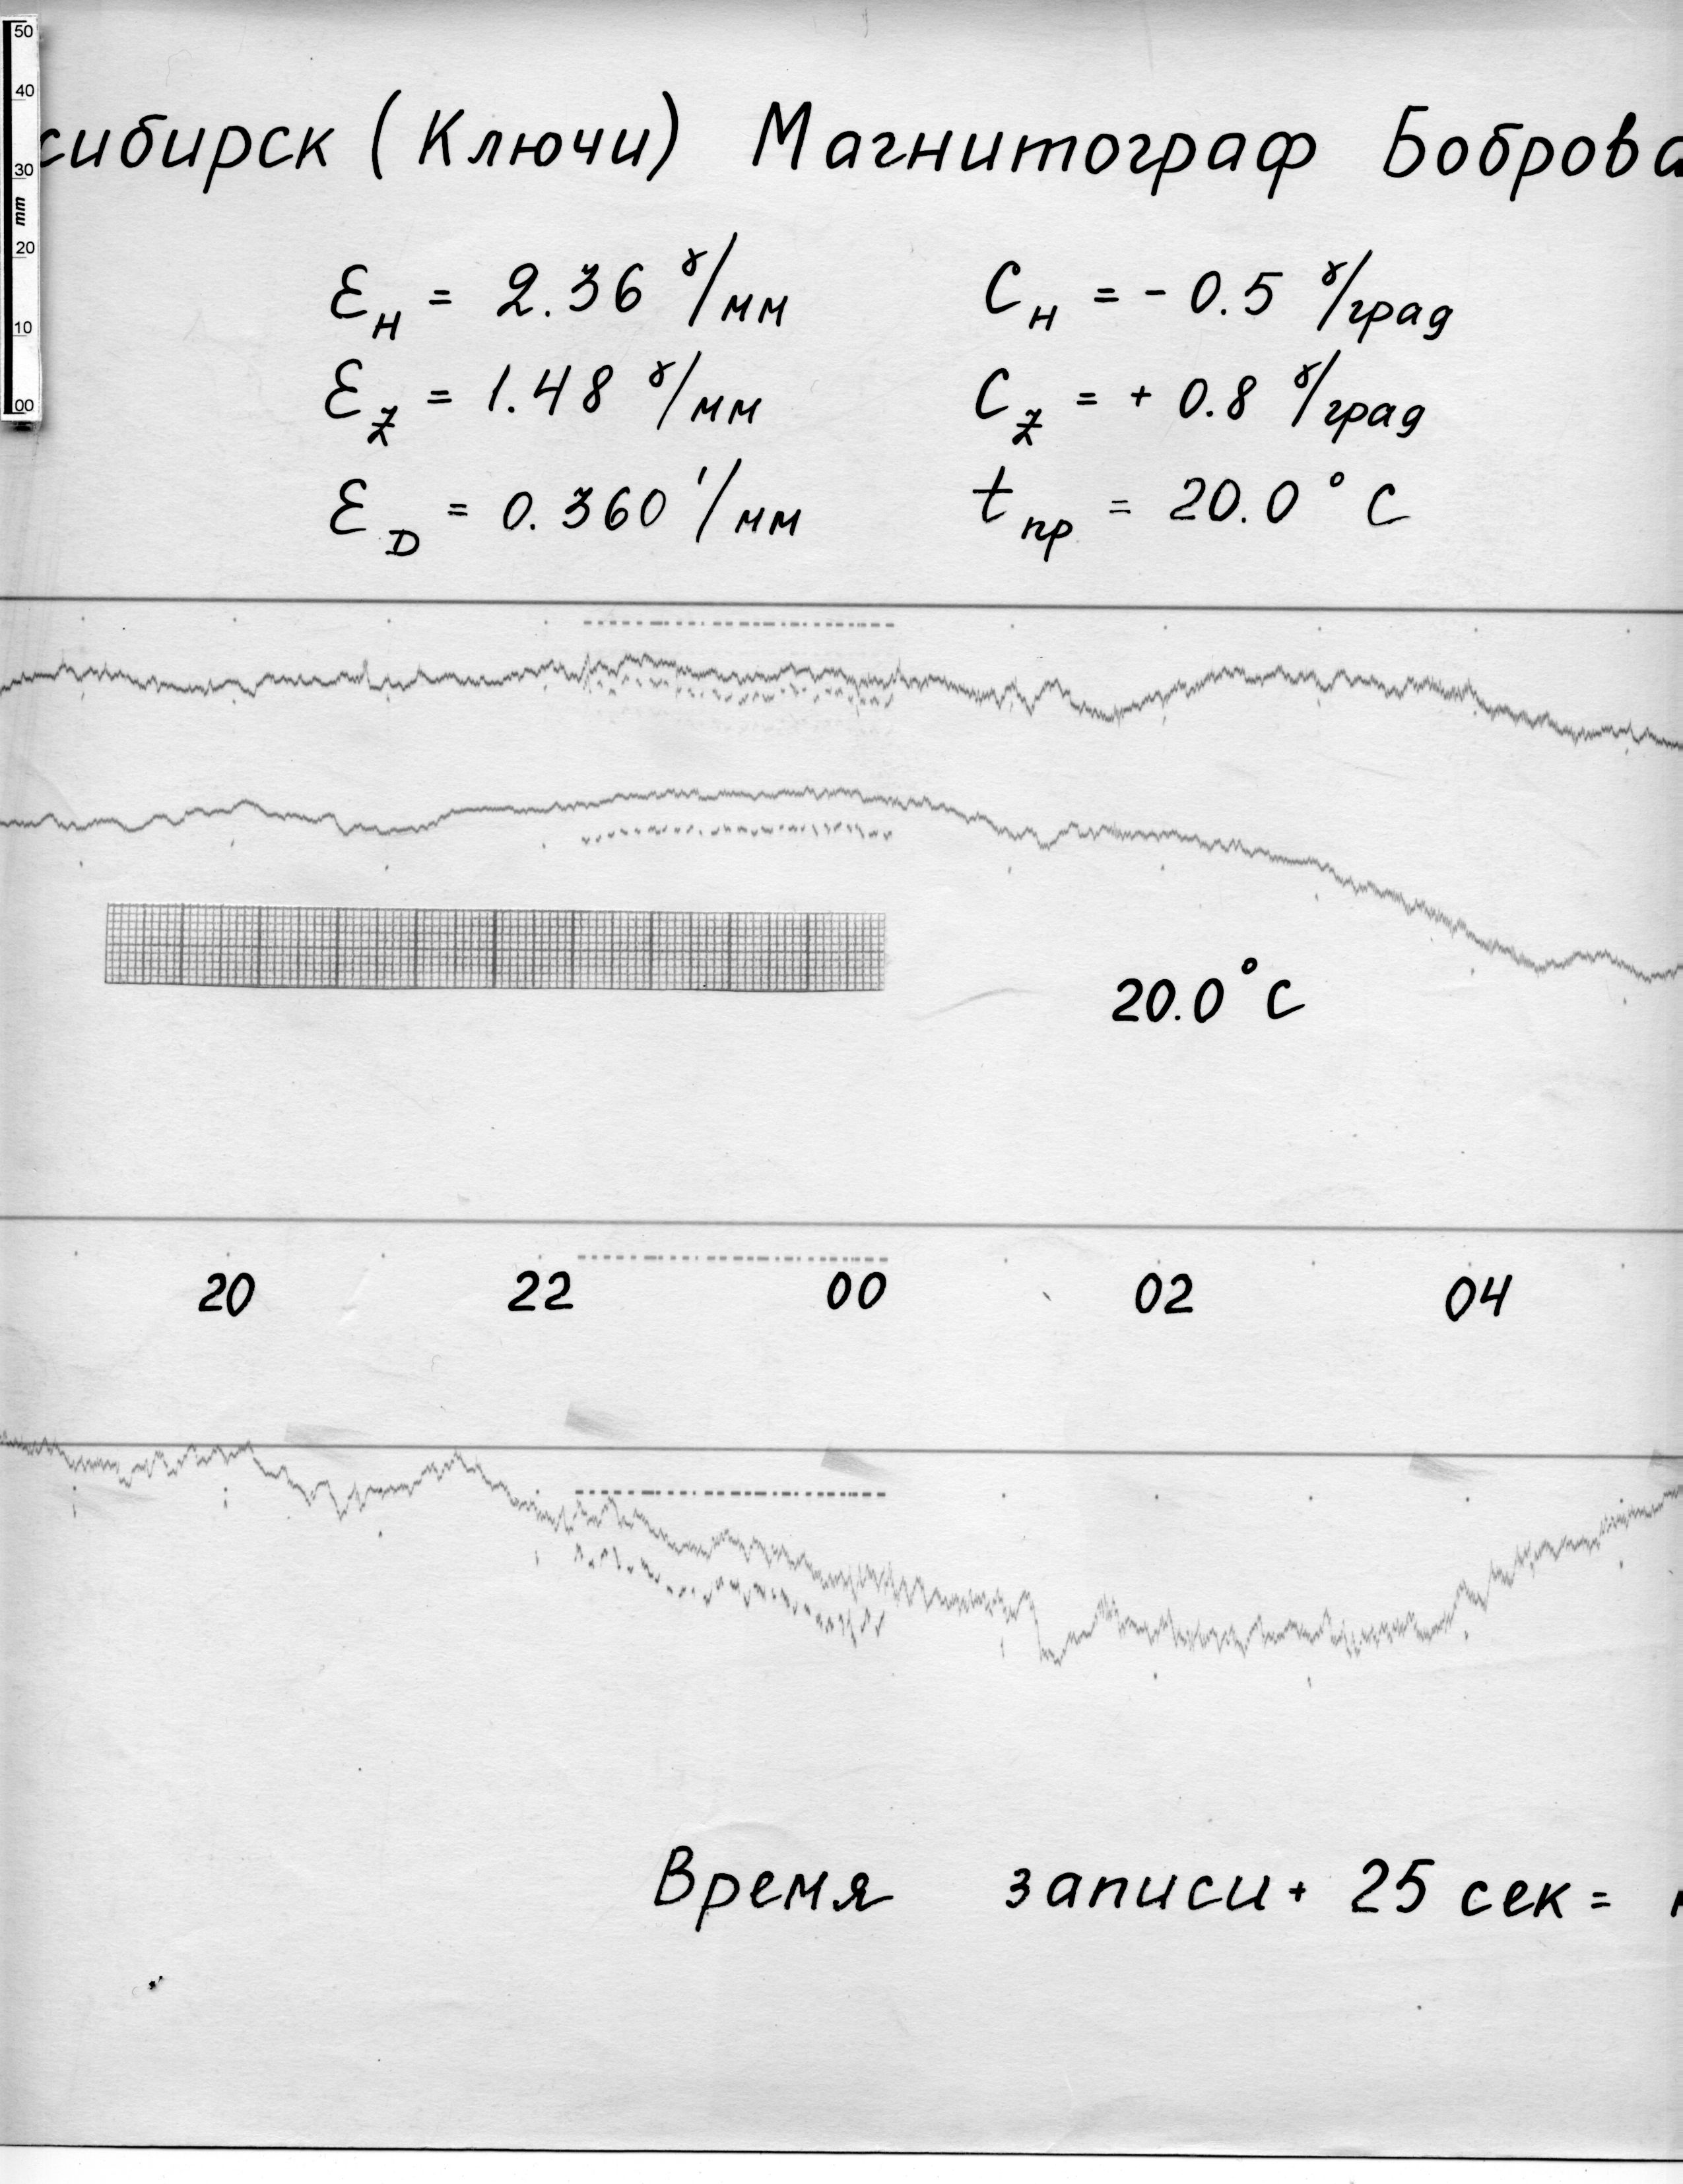 50
40
30
mm
20
10
00
сибирск (Ключи) Магнитограф Боброва
Ɛ_H = 2.36 ɣ/мм C_H = - 0.5 ɣ/град
Ɛ_Z = 1.48 ɣ/мм C_Z = + 0.8 ɣ/град
Ɛ_D = 0.360 '/мм t_пр = 20.0° C
20.0° C
20 22 00 02 04
Время записи + 25 сек =